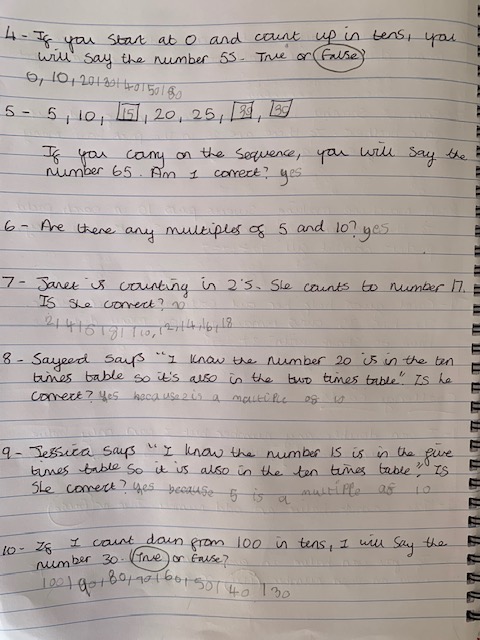 4 - If you start at 0 and count up in tens, you
will say the number 55. True or False?
0, 10, 20, 30, 40, 50, 60
5 - 5, 10, 15, 20, 25, 30, 35
If you carry on the sequence, you will say the
number 65. Am I correct? yes
6 - Are there any multiples of 5 and 10? yes
7 - Janet is counting in 2's. She counts to number 17.
Is she correct? no
2, 4, 6, 8, 10, 12, 14, 16, 18
8 - Sayeed says "I know the number 20 is in the ten
times table so it's also in the two times table". Is he
correct? yes because 2 is a multiple of 10
9 - Jessica says "I know the number 15 is in the five
times table so it is also in the ten times table". Is
she correct? yes because 5 is a multiple of 10
10 - If I count down from 100 in tens, I will say the
number 30. True or False?
100, 90, 80, 70, 60, 50, 40, 30